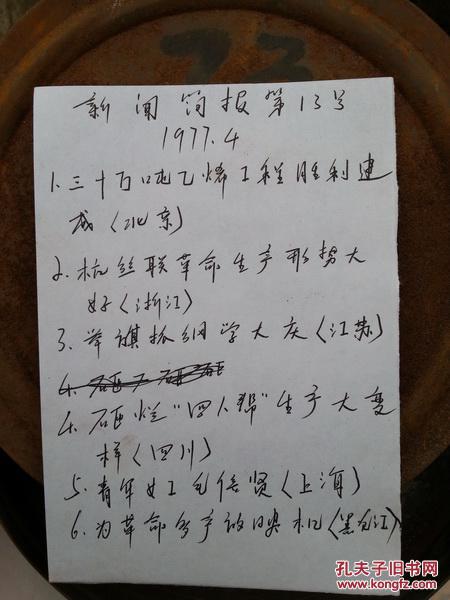 新闻简报第13号
1977.4
1.三十万吨乙烯工程胜利建
成(北京)
2.杭丝联革命生产形势大
好(浙江)
3.举旗抓纲学大庆(江苏)
4.砸
4.砸烂“四人帮”生产大变
样(四川)
5.青年女工毛信贤(上海)
6.为革命多产放映机(黑龙江)
孔夫子旧书网
www.kongfz.com